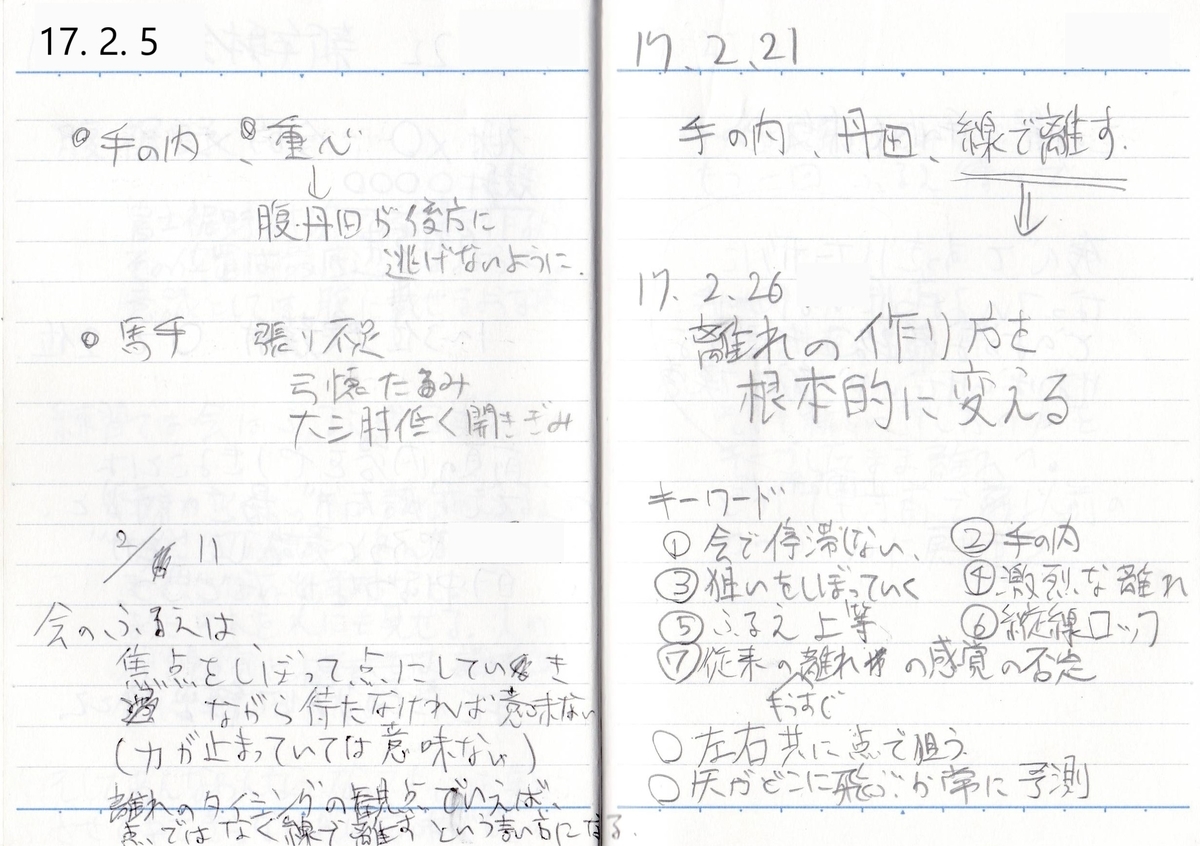 17. 2. 5
◎手の内、◎重心
↓
腹・丹田が後方に
逃げないように.
◎ 馬手　張り不足
弓懐たるみ
大三肘低く開きぎみ
2/11
会のふるえは
焦点をしぼって点にしていき
ながら待たなければ意味ない
(力が止まっていては意味ない)
離れのタイミングの観点でいえば、
点ではなく線で離すという言い方になる.
17. 2. 21
手の内、丹田、線で離す.
⇓
17. 2. 26
離れの作り方を
根本的に変える
キーワード
①会で停滞しない、 ②手の内
③狙いをしぼっていく ④激烈な離れ
⑤ふるえ上等 ⑥縦線ロック
⑦従来の離れの感覚の否定
○左右共に点で狙う
○矢がどこに飛ぶか常に予測